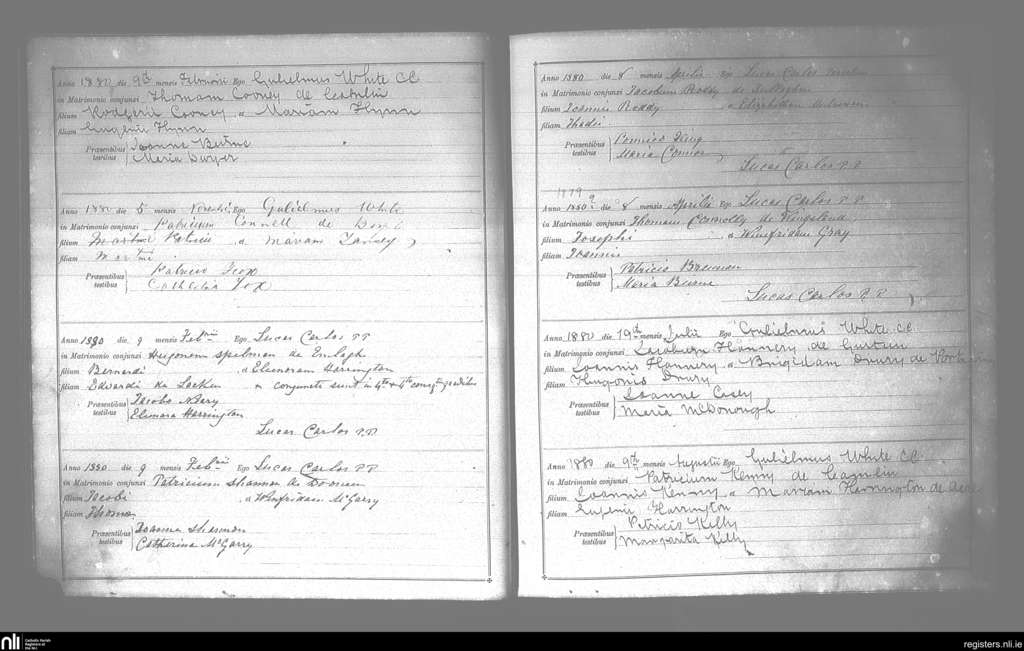 Anno 1880 die 9th mensis Februarii Ego Gulielmus White CC
in Matrimonio conjunxi Thomam Cooney de
filium Rodgeri Cooney a Mariam Flynn
filiam Eugenii Flynn
Præsentibus testibus Joanne Burne
Maria Dwyer
Anno 1880 die 5 mensis Ego Gulielmus White
in Matrimonio conjunxi Patricium Connell de
filium Martini Patricii a Mariam
filiam Martini
Præsentibus testibus Patricio Fox
Catherina Fox
Anno 1880 die 9 mensis Febrii Ego Lucas Carlos PP
in Matrimonio conjunxi Hugonem Spelman de Emlagh
filium Bernardi a Eleanoram Harrington
filiam Edwardi de Lacken conjuncti sunt in 4th
Præsentibus testibus Jacobo Neary
Elenora Harrington
Lucas Carlos P.P.
Anno 1880 die 9 mensis Febrii Ego Lucas Carlos PP
in Matrimonio conjunxi Patricium Shannon de
filium Jacobi a Winifridam McGarry
filiam Thomae
Præsentibus testibus Joanna Shannon
Catherina McGarry
Anno 1880 die 8 mensis Aprilis Ego Lucas Carlos
in Matrimonio conjunxi Jacobum Reddy de
filium Joannis Reddy a Elizabetham
filiam Thadei
Præsentibus testibus
Maria Connor
Lucas Carlos P.P.
1879
Anno 1880 ? die 8 mensis Aprilis Ego Lucas Carlos P.P.
in Matrimonio conjunxi Thomam Connolly de Kingsland
filium Josephi a Winifridam Gray
filiam Joannis
Præsentibus testibus Patricio Brennan
Maria Burne
Lucas Carlos P.P.
Anno 1880 die 19th mensis Julii Ego Gulielmus White CC
in Matrimonio conjunxi Jacobum Flannery de
filium Joannis Flannery a Brigidam Drury de
filiam Hugonis Drury
Præsentibus testibus Joanne Casey
Maria McDonough
Anno 1880 die 9th mensis Augustii Ego Gulielmus White CC
in Matrimonio conjunxi Patricium Kenny de
filium Joannis Kenny a Mariam Harrington de
filiam Eugenii Harrington
Præsentibus testibus Patricio Kelly
Margarita Kelly
nli Catholic Parish Registers at the NLI
registers.nli.ie